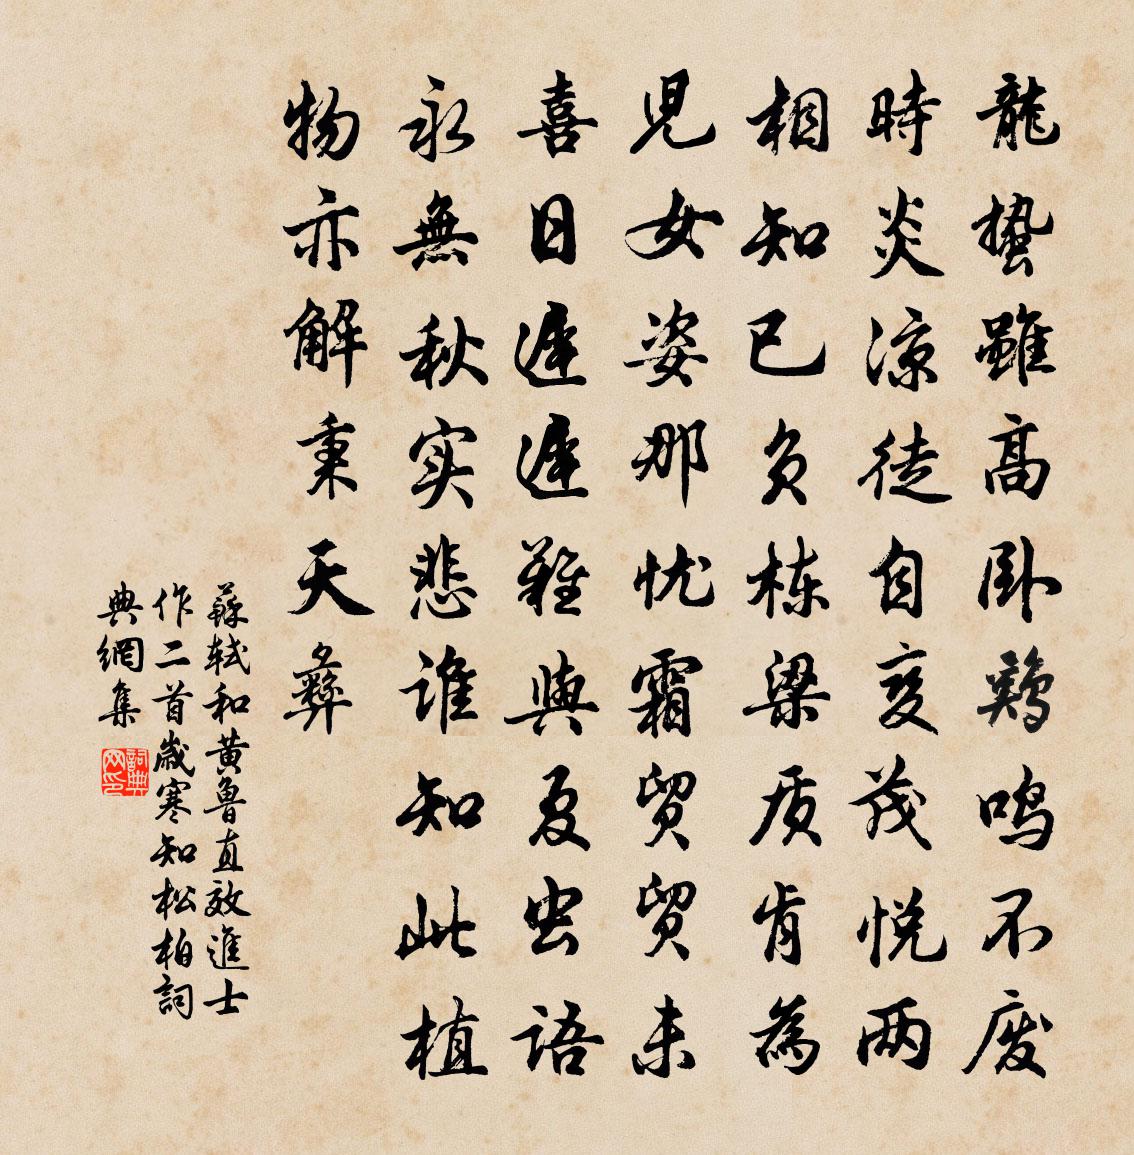 龍蛰雖高卧鷄鸣不废
時炎凉徒自变茂悦两
相知已负栋梁质肯為
兒女姿那忧霜贸贸未
喜日遲遲難與夏虫语
永無秋实悲谁知此植
物亦解秉天彝
蘇轼和黄魯直效進士
作二首歲寒知松柏詞
典網集
詞典网印